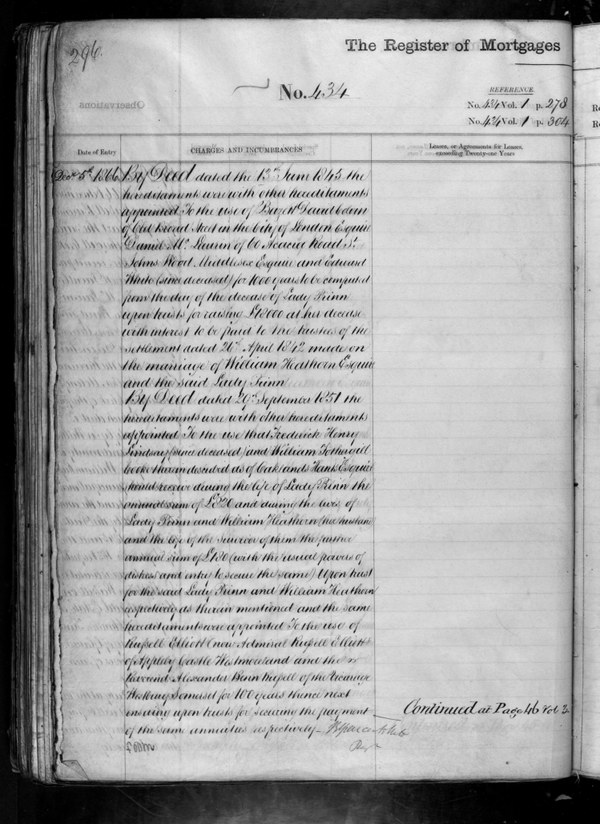 296
The Register of Mortgages
No. 434
REFERENCE.
No. 434 Vol. 1 p. 278
No. 434 Vol. 1 p. 304
Observations
Date of Entry
CHARGES AND INCUMBRANCES
Leases, or Agreements for Leases,
exceeding Twenty-one Years
5th 1866 By Deed dated the 13th June 1845 the
hereditaments were with other hereditaments
appointed To the use of
of Old Broad Street in the City of London Esquire
Daniel of 60 Acacia Road St.
Johns Wood Middlesex Esquire and Edward
White (since deceased) for 1000 years to be computed
from the day of the decease of Lady Prinn
upon trusts for raising £18000 at her decease
with interest to be paid to the trustees of the
settlement dated 26th April 1842 made on
the marriage of William Heathorn Esquire
and the said Lady Prinn
By Deed dated 29th September 1851 the
hereditaments were with other hereditaments
appointed To the use that Frederick Henry
Lindsay (since deceased) and William Fothergill
Cooke therein described as of Oaklands Hants Esquire
should receive during the life of Lady Prinn the
annual sum of and during the lives of
Lady Prinn and William Heathorn (her husband)
and the life of the survivor of them the further
annual sum of £130 (with the usual powers of
distress and entry to secure the same) Upon trust
for the said Lady Prinn and William Heathorn
respectively as therein mentioned and the same
hereditaments were appointed To the use of
Russell Elliott (now Admiral Russell Elliott)
of Appleby Castle Westmoreland and the
Reverend Alexander Penn Russell of the Vicarage
Wookey Somerset for 100 years thence next
ensuing upon trusts for securing the payment
of the same annuities respectively
Continued at Page 46 Vol 2